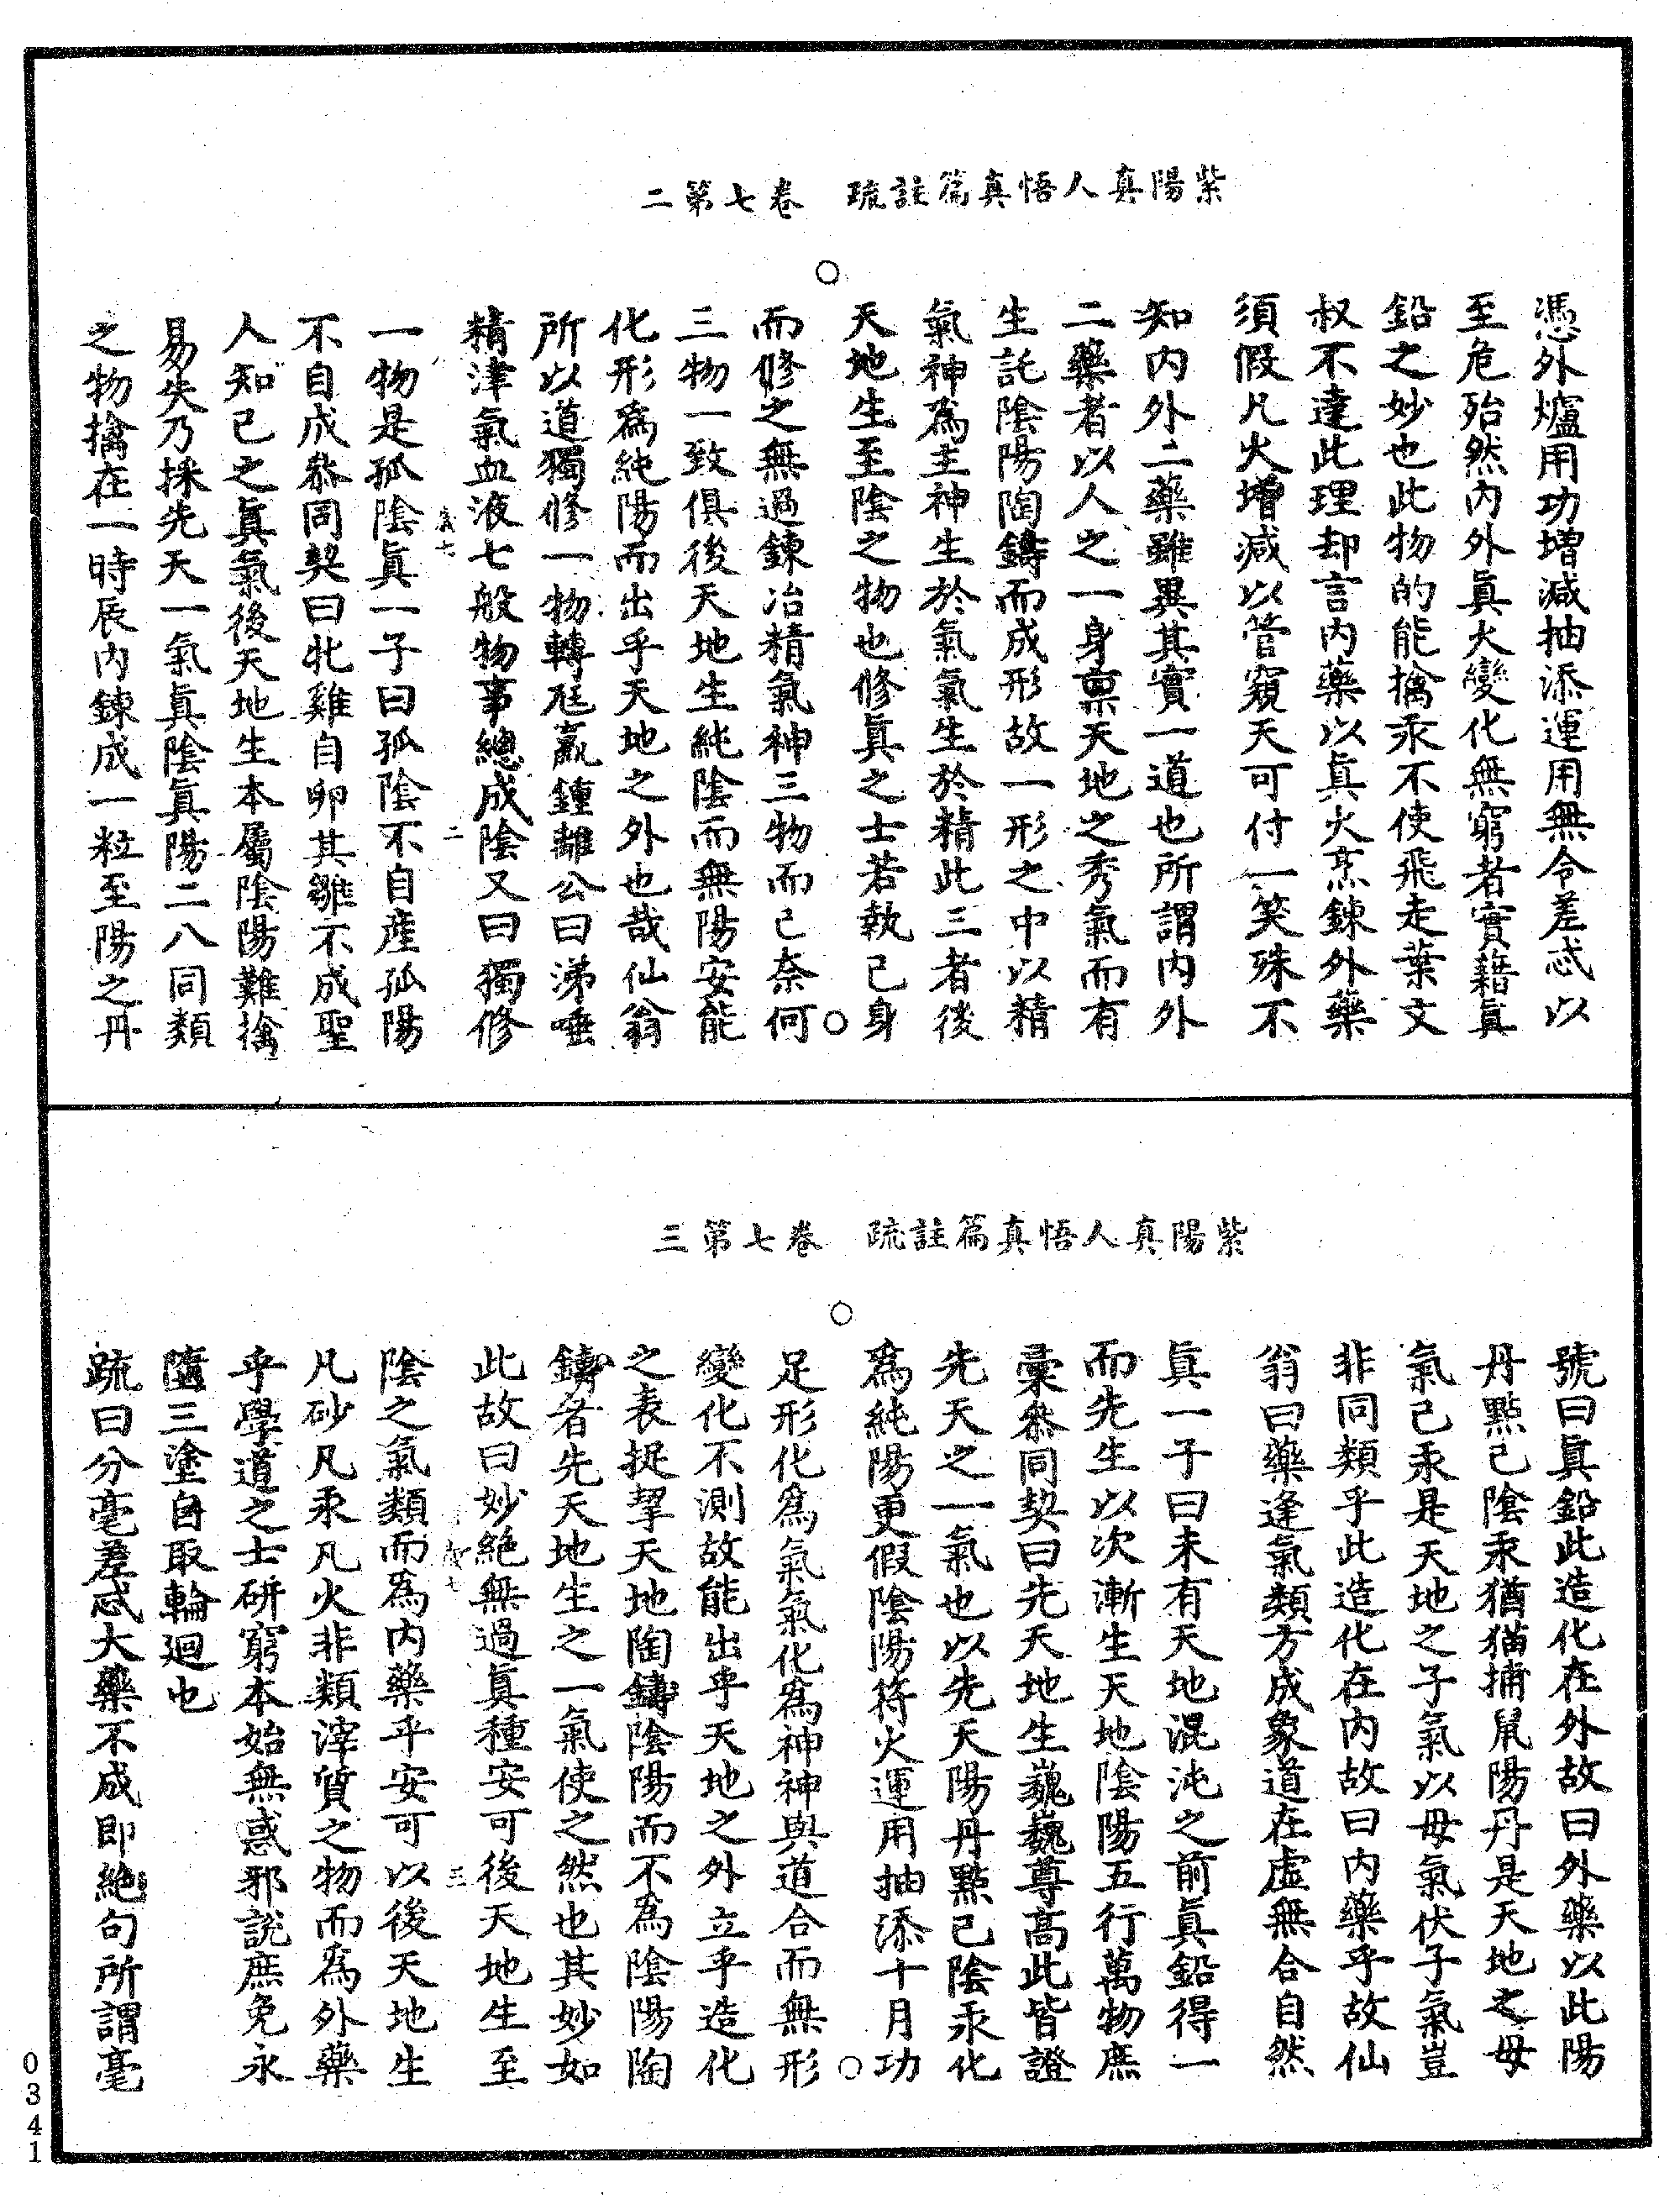 紫陽真人悟真篇註疏　卷七第二
憑外爐用功增減抽添運用無令差忒以
至危殆然內外眞火變化無窮者實藉眞
鉛之妙也此物的能擒汞不使飛走葉文
叔不達此理却言內藥以眞火烝鍊外藥
須假凡火增減以管窺天可付一笑殊不
知內外二藥雖異其實一道也所謂內外
二藥者以人之一身稟天地之秀氣而有
生託陰陽陶鑄而成形故一形之中以精
氣神爲主神生於氣氣生於精此三者後
天地生至陰之物也修眞之士若執己身
而修之無過鍊冶精氣神三物而已奈何
三物一致俱後天地生純陰而無陽安能
化形爲純陽而出乎天地之外也哉仙翁
所以道獨修一物轉尫羸鍾離公曰涕唾
精津氣血液七般物事總成陰又曰獨修
一物是孤陰眞一子曰孤陰不自產孤陽
不自成叅同契曰牝雞自卵其雛不成聖
人知己之眞氣後天地生本屬陰陽難擒
易失乃採先天一氣眞陰眞陽二八同類
之物擒在一時辰內鍊成一粒至陽之丹
紫陽真人悟真篇註疏　卷七第三
號曰眞鉛此造化在外故曰外藥以此陽
丹點己陰汞猶猫捕鼠陽丹是天地之母
氣己汞是天地之子氣以母氣伏子氣豈
非同類乎此造化在內故曰內藥乎故仙
翁曰藥逢氣類方成象道在虛無合自然
眞一子曰未有天地混沌之前眞鉛得一
而先生以次漸生天地陰陽五行萬物庶
彙叅同契曰先天地生巍巍尊高此皆證
先天之一氣也以先天陽丹點己陰汞化
爲純陽更假陰陽符火運用抽添十月功
足形化爲氣氣化爲神神與道合而無形
變化不測故能出乎天地之外立乎造化
之表捉挈天地陶鑄陰陽而不爲陰陽陶
鑄者先天地生之一氣使之然也其妙如
此故曰妙絕無過眞種安可後天地生至
陰之氣類而爲內藥乎安可以後天地生
凡砂凡汞凡火非類滓質之物而爲外藥
乎學道之士研窮本始無惑邪說庶免永
墮三塗自取輪迴也
疏曰分毫差忒大藥不成即絕句所謂毫
0341